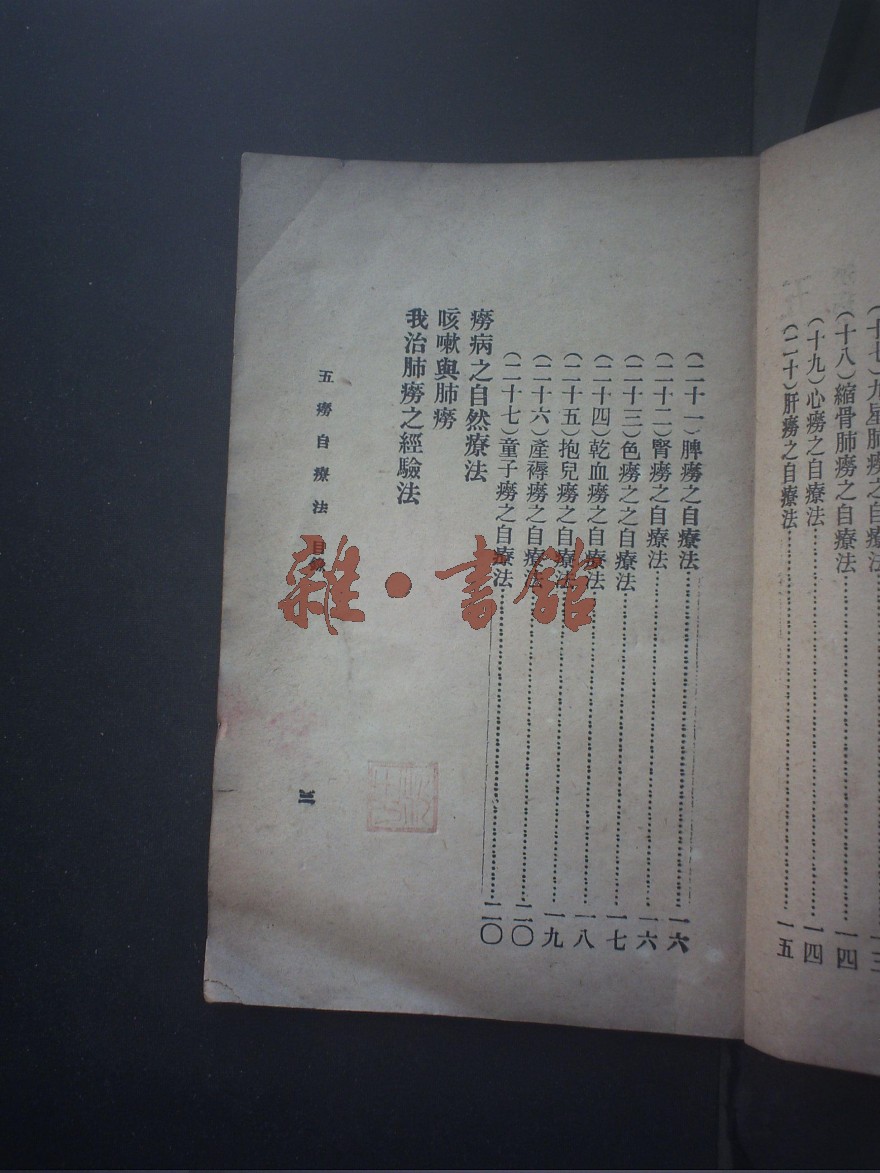 （十七）九星肺癆之自療法……一三
（十八）縮骨肺癆之自療法……一四
（十九）心癆之自療法……一四
（二十）肝癆之自療法……一五
（二十一）脾癆之自療法……一六
（二十二）腎癆之自療法……一六
（二十三）色癆之之自療法……一七
（二十四）乾血癆之自療法……一八
（二十五）抱兒癆之自療法……一九
（二十六）產褥癆之自療法……二〇
（二十七）童子癆之自療法……二〇
癆病之自然療法
咳嗽與肺癆
我治肺癆之經驗法
五癆自療法 目錄
雜·書館